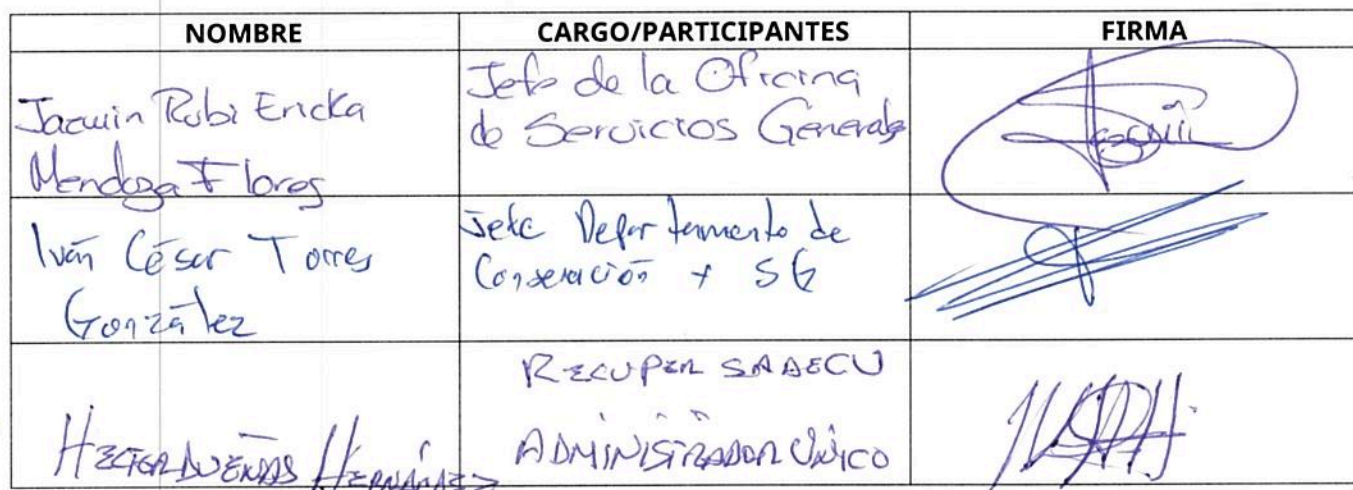 NOMBRE CARGO/PARTICIPANTES FIRMA
Jazmin Rubi Ericka
Mendoza Flores
Jefe de la Oficina
de Servicios Generales
Iván César Torres
González
Jefe Departamento de
Conservación y SG
HECTOR DUEÑAS HERNÁNDEZ
RECUPER SADECU
ADMINISTRADOR ÚNICO